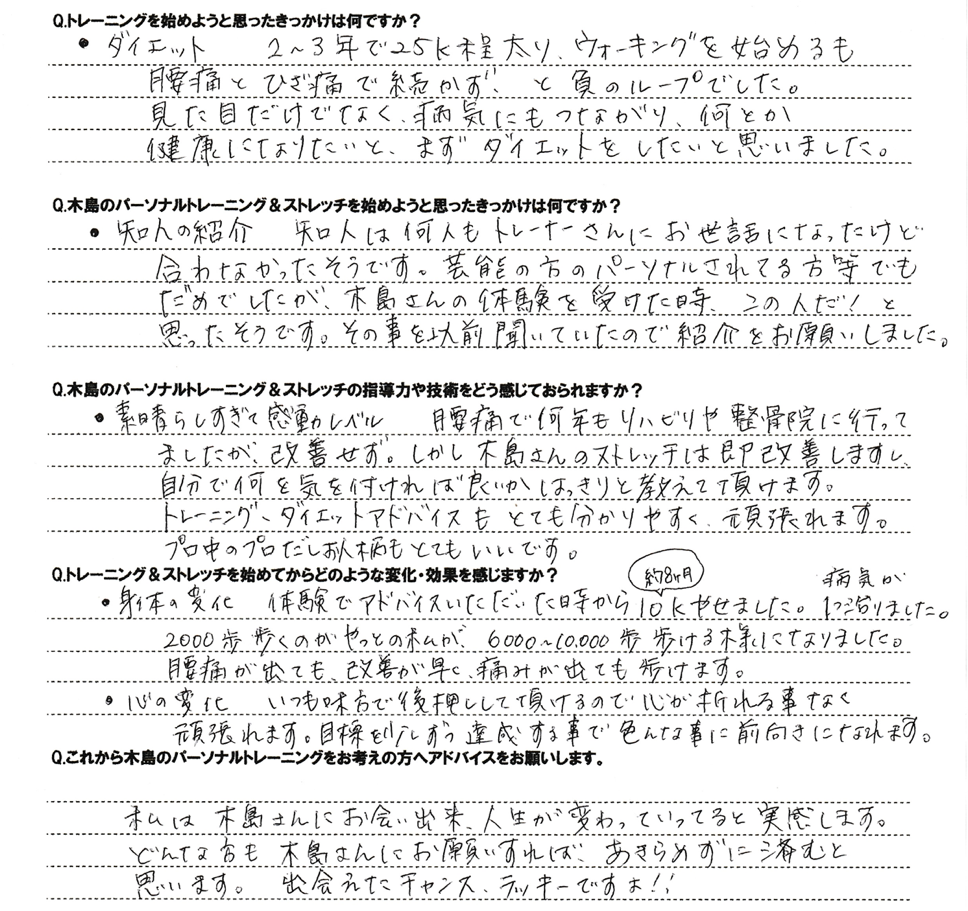 Q.トレーニングを始めようと思ったきっかけは何ですか？
・ダイエット 2～3年で25K程太り、ウォーキングを始めるも
腰痛とひざ痛で続かず、と負のループでした。
見た目だけでなく、病気にもつながり、何とか
健康になりたいと、まずダイエットをしたいと思いました。
Q.木島のパーソナルトレーニング＆ストレッチを始めようと思ったきっかけは何ですか？
・知人の紹介 知人は何人もトレーナーさんにお世話になったけど
合わなかったそうです。芸能の方のパーソナルされてる方等でも
だめでしたが、木島さんの体験を受けた時、この人だ！と
思ったそうです。その事を以前聞いていたので紹介をお願いしました。
Q.木島のパーソナルトレーニング＆ストレッチの指導力や技術をどう感じておられますか？
・素晴らしすぎて感動レベル 腰痛で何年もリハビリや整骨院に行って
ましたが、改善せず。しかし木島さんのストレッチは即改善しますし、
自分で何を気を付ければ良いかはっきりと教えて頂けます。
トレーニング、ダイエットアドバイスもとても分かりやすく、頑張れます。
プロ中のプロだしお人柄もとてもいいです。
Q.トレーニング＆ストレッチを始めてからどのような変化・効果を感じますか？
約8ヶ月
病気が
・身体の変化 体験でアドバイスいただいた時から10Kやせました。1つ治りました。
2000歩歩くのがやっとの私が、6000～10.000歩歩ける様になりました。
腰痛が出ても、改善が早く、痛みが出ても歩けます。
・心の変化 いつも味方で後押しして頂けるので心が折れる事なく
頑張れます。目標を少しずつ達成する事で色んな事に前向きになれます。
Q.これから木島のパーソナルトレーニングをお考えの方へアドバイスをお願いします。
私は木島さんにお会い出来、人生が変わっていってると実感します。
どんな方も木島さんにお願いすれば、あきらめずに済むと
思います。 出会えたチャンス、ラッキーですよ！！